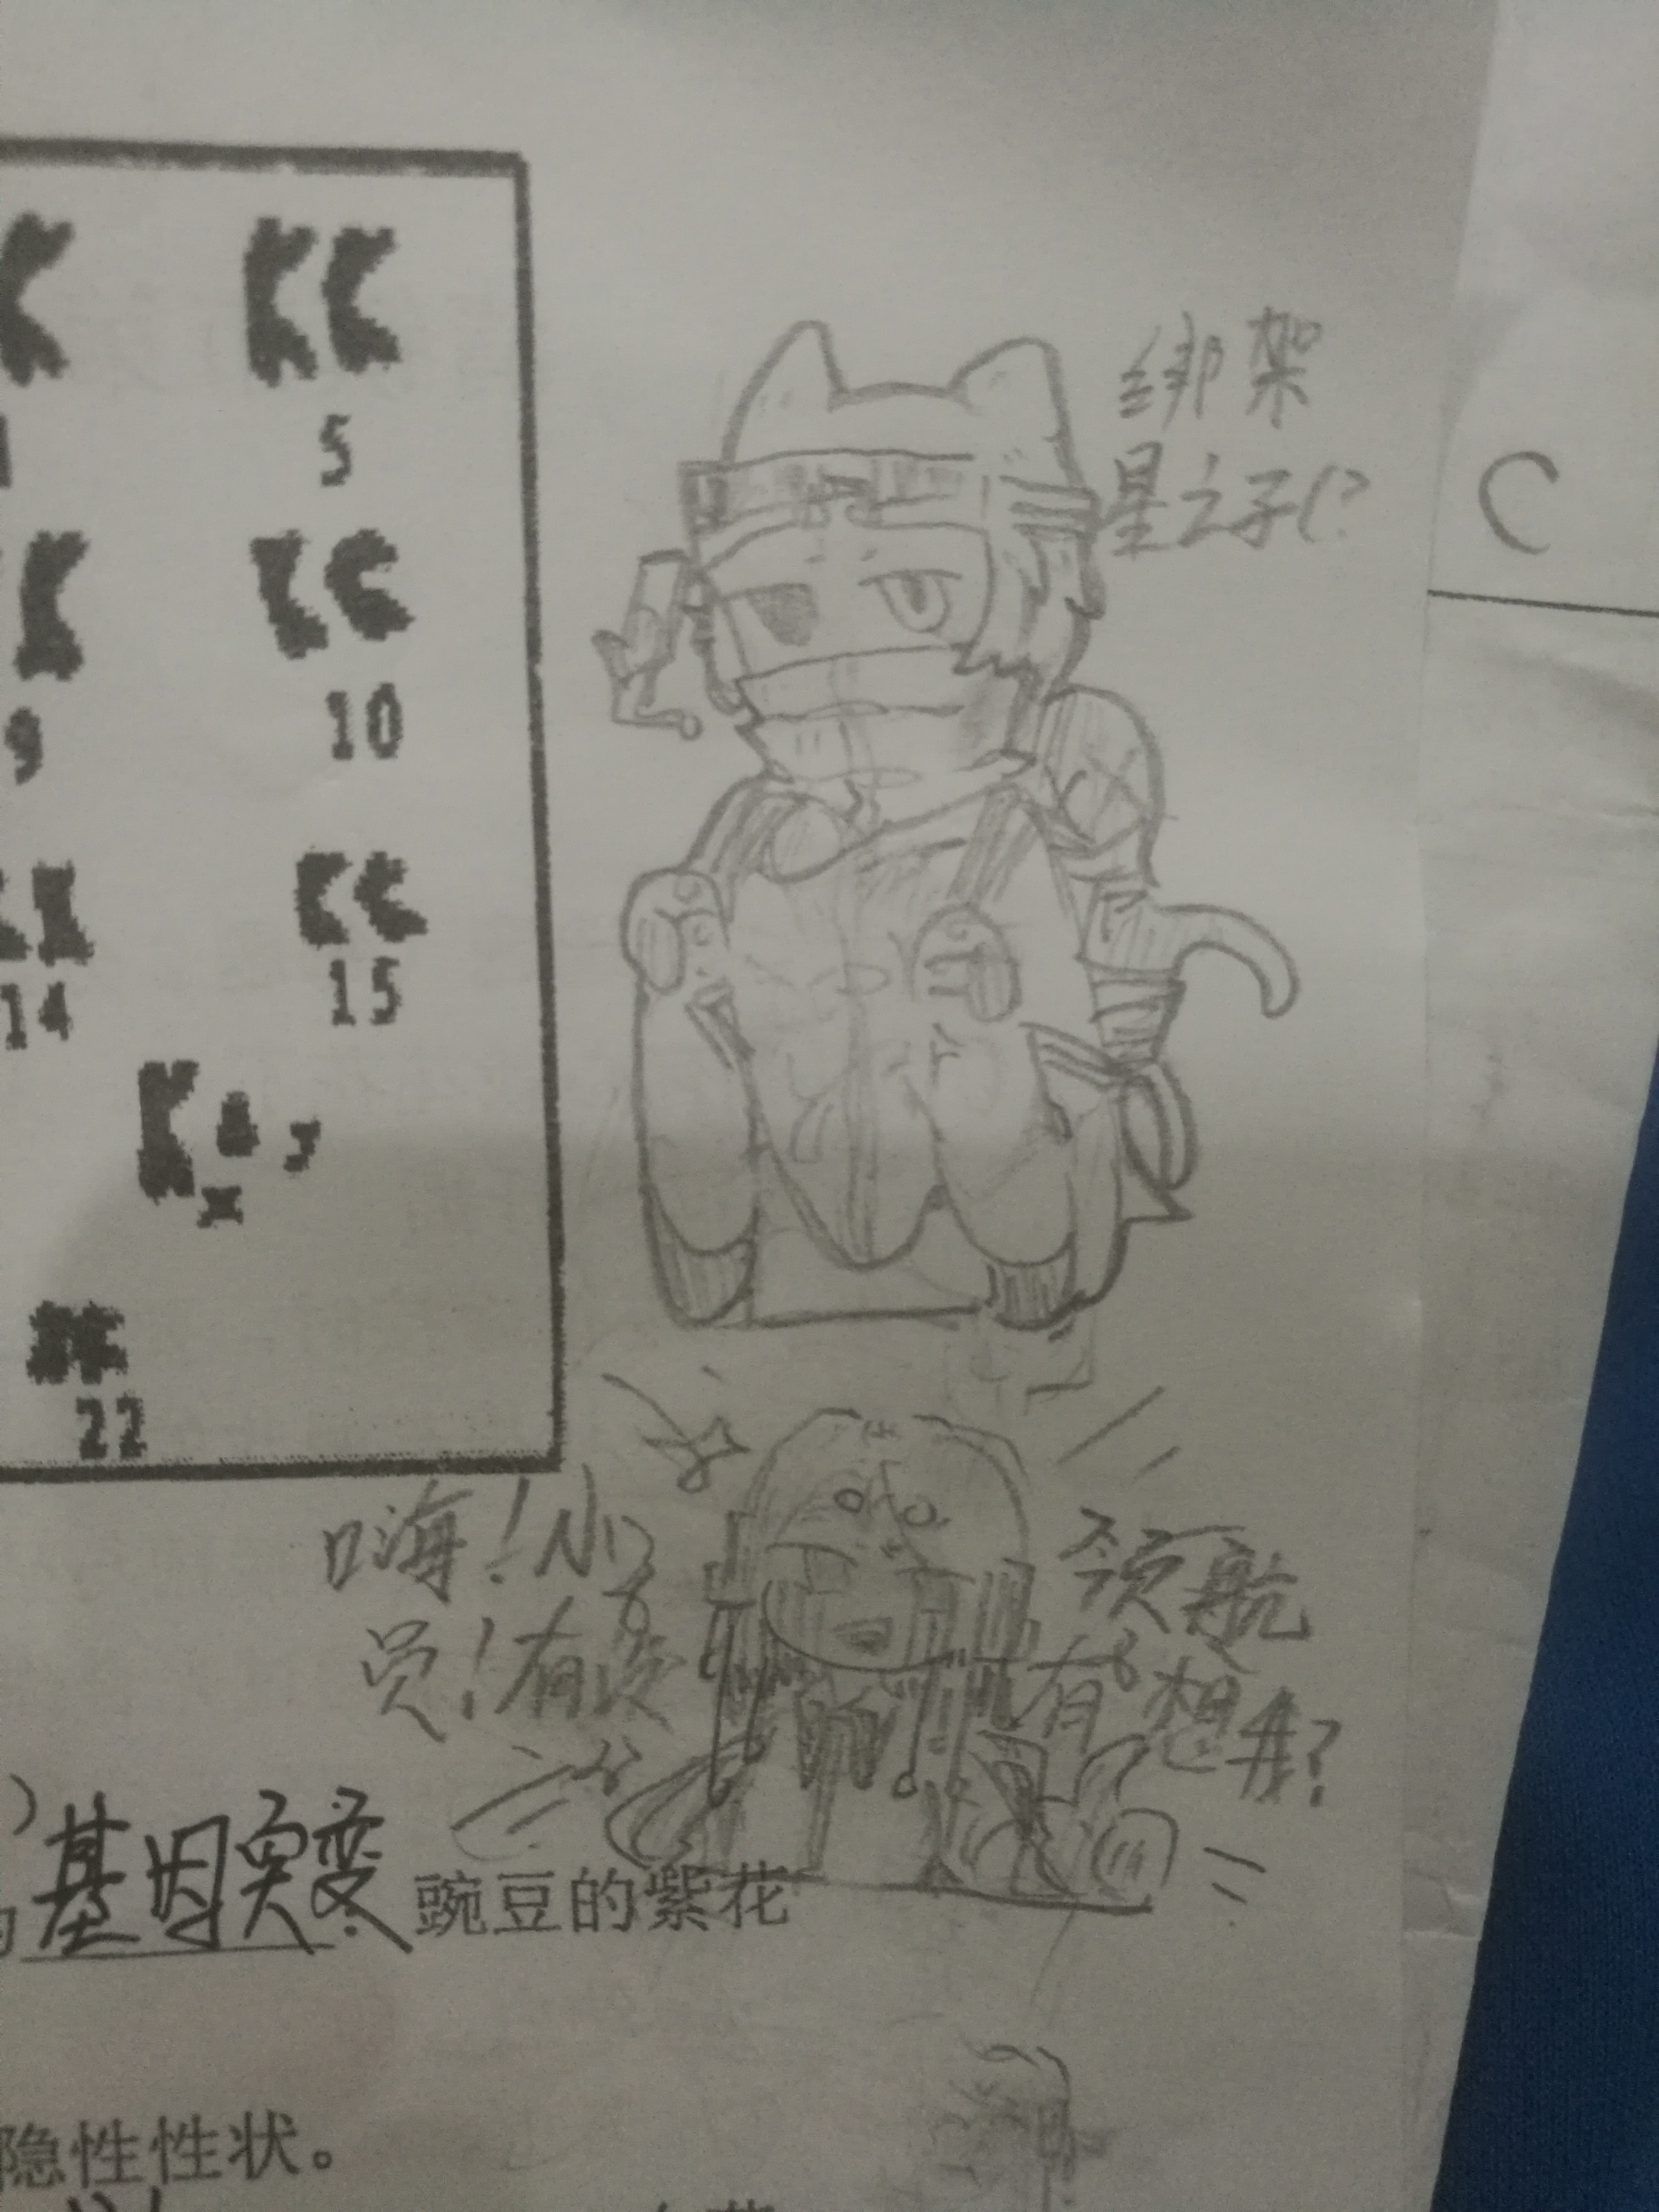 绑架
星之子(?
C
5
9
10
14
15
x
y
22
嗨!小
员!有没
领航
有想
基因突变 豌豆的紫花
隐性性状。